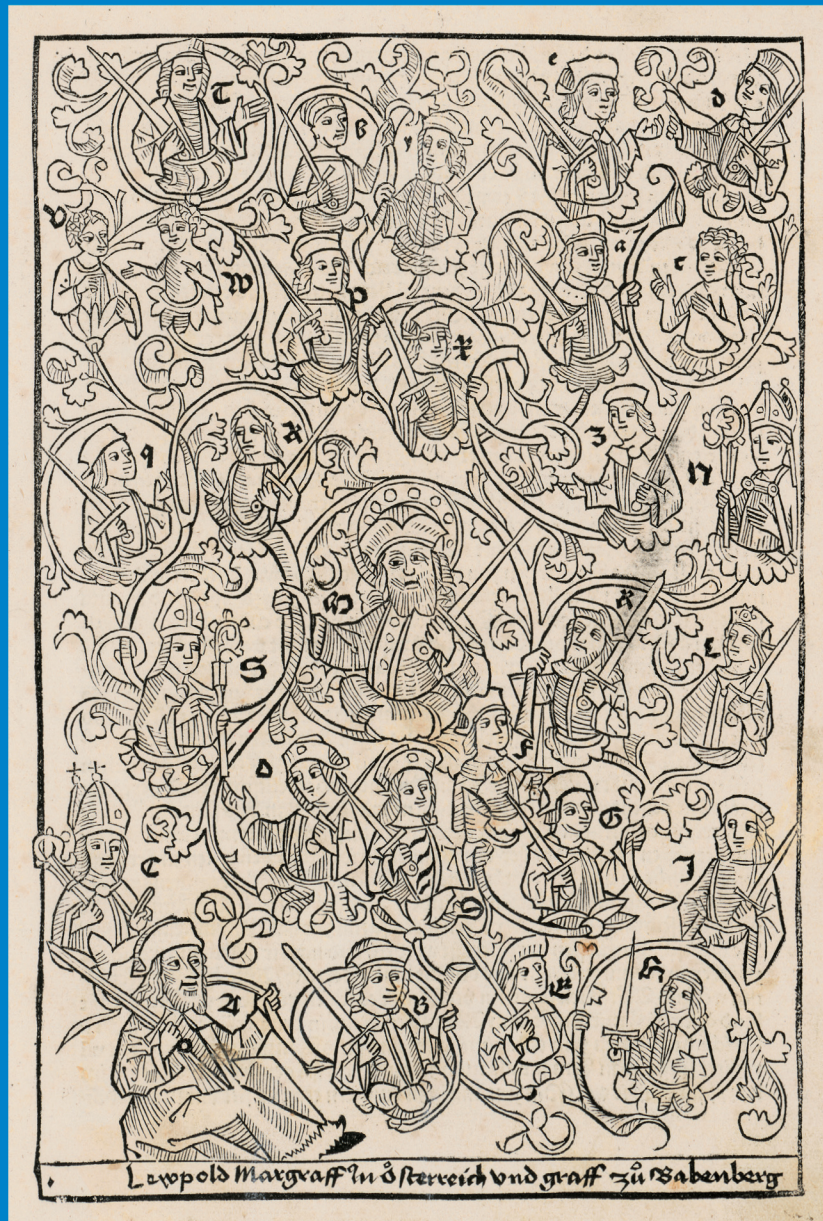 T
B
y
e
d
v
W
p
a
c
q
A
3
N
S
K
L
D
F
G
C
I
A
B
E
H
Lewpold Margraff in österreich vnd graff zů Babenberg